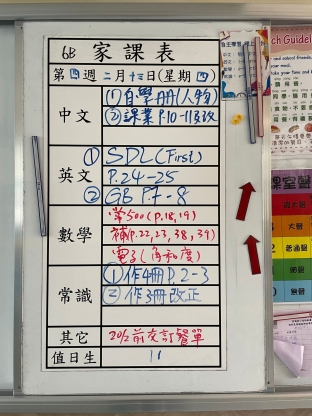 6B 家課表
第四週 二月十三日(星期四)
中文
① 自學冊(人物)
② 課業 P.10-11改
英文
① SDL (First)
P.24-25
② GB P.7-8
數學
學500 (p.18, 19)
補p.22, 23, 38, 39)
電子(角和度)
常識
① 作4冊 P.2-3
② 作3冊改正
其它
20/2前交訂餐單
值日生
11
ch Guideli
大聲
普通聲
細聲
無聲